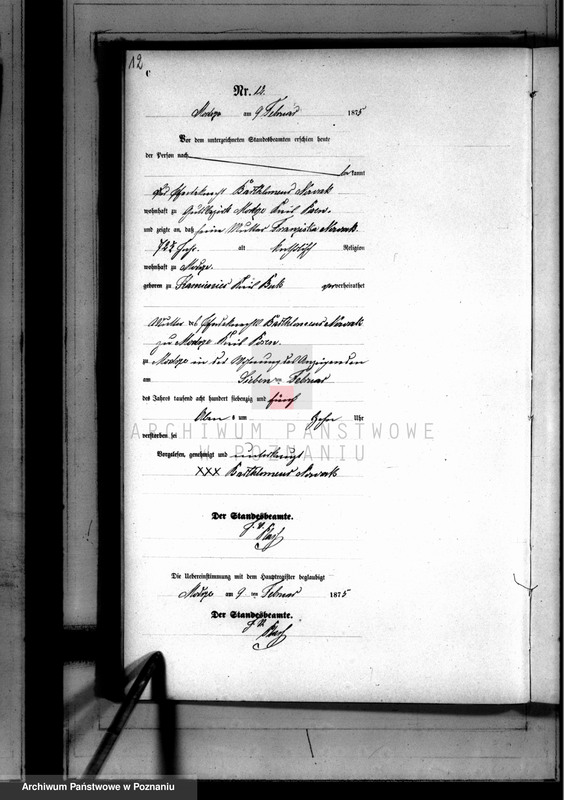 12
C
Nr. 12.
Modrze am 9 Februar 1875
Vor dem unterzeichneten Standesbeamten erschien heute
der Person nach
kannt
der Pferdeknecht Barthlomeus Nowak
wohnhaft zu Gutsbezirk Modrze Kreis Posen.
und zeigte an, daß seine Mutter Franziska Nowak.
72½ Jahr. alt katholisch Religion
wohnhaft zu Modrze.
geboren zu Kamieniec Kreis Buk verheirathet
Mutter des Pferdeknecht Barthlomeus Nowak
zu Modrze Kreis Posen.
zu Modrze in der Wohnung des Anzeigenden
am Sieben ten Februar
des Jahres tausend acht hundert siebenzig und fünf
Aben s um Zehn Uhr
verstorben sei
Vorgelesen, genehmigt und
XXX Barthlomeus Nowak
Der Standesbeamte.
J. V.
Die Uebereinstimmung mit dem Hauptregister beglaubigt
Modrze am 9 ten Februar 1875
Der Standesbeamte.
J. V.
ARCHIWUM PAŃSTWOWE
W POZNANIU
Archiwum Państwowe w Poznaniu